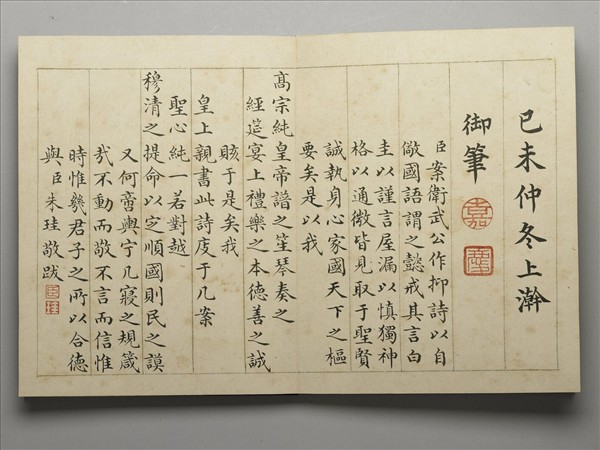 己未仲冬上澣
御筆 嘉 慶
臣案衛武公作抑詩以自
儆國語謂之懿戒其言白
圭以謹言屋漏以慎獨神
格以通微皆見取于聖賢
誠執身心家國天下之樞
要矣是以我
髙宗純皇帝譜之笙琴奏之
經筵宴上禮樂之本德善之誠
賅于是矣我
皇上親書此詩庋于几案
聖心純一若對越
穆清之提命以定順國則民之謨
又何啻輿宁几寢之規箴
哉不動而敬不言而信惟
時惟幾君子之所以合德
與臣朱珪敬跋 臣珪